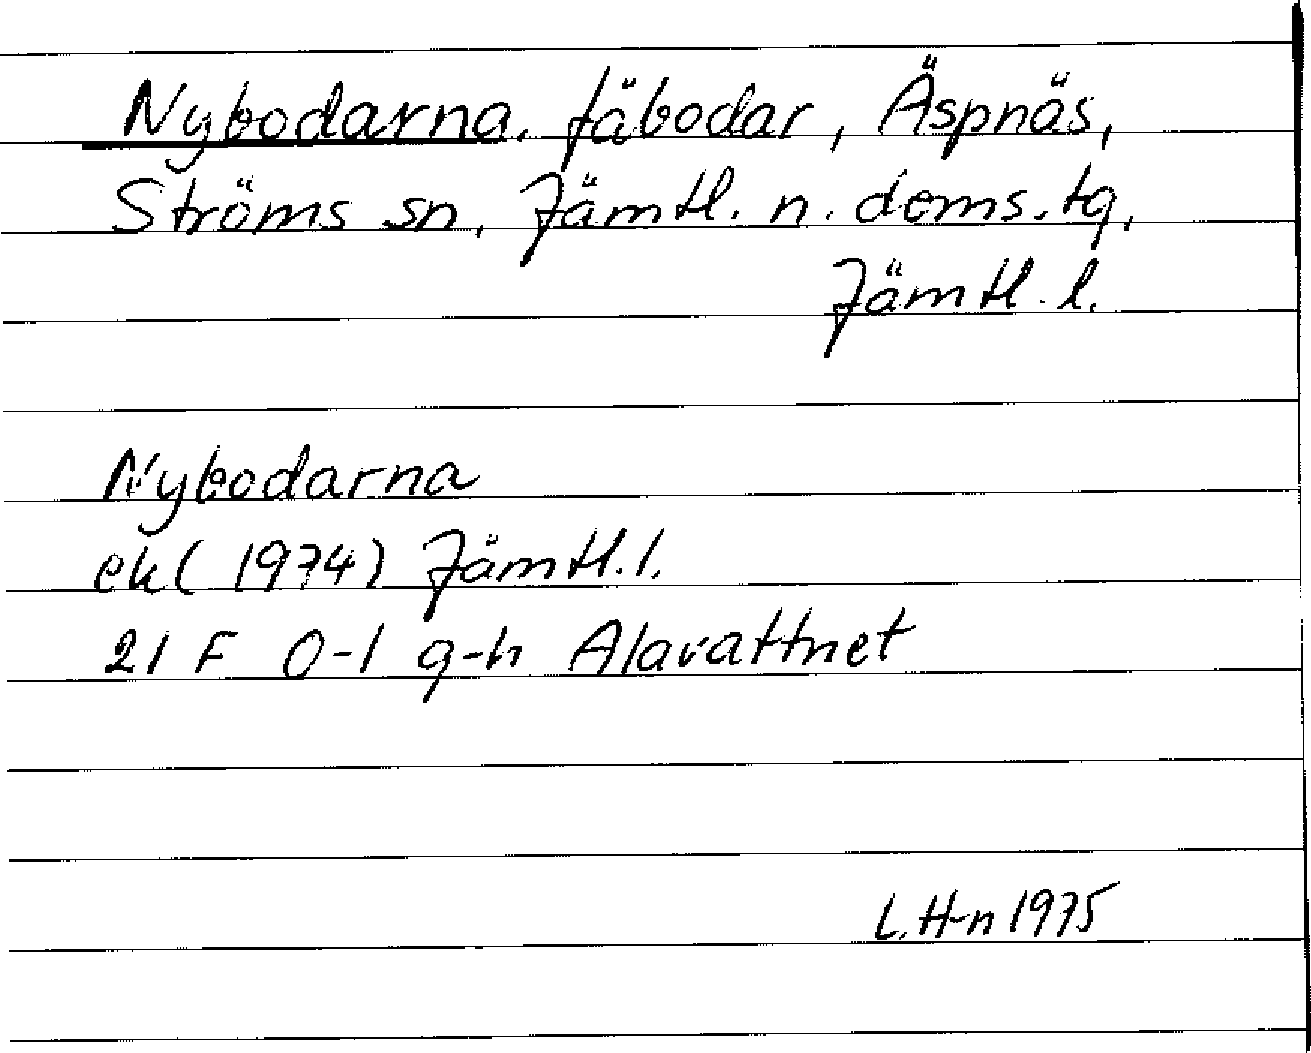 Nybodarna, fäbodar, Äspnäs,
Ströms sn, Jämtl. n. doms. tg,
Jämtl. l.
Nybodarna
ek (1974) Jämtl. l.
21 F 0-1 g-h Alavattnet
L. H-n 1975